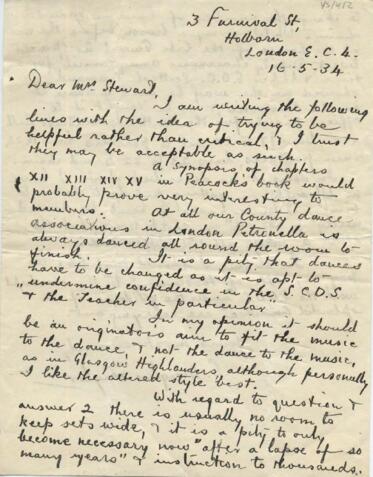 3 Furnival St,
Holborn
London E.C.4.
16-5-34
Dear Mrs Stewart,
I am writing the following
lines with the idea of trying to be
helpful rather than critical, & I trust
they may be acceptable as such.
A Synopsis of chapters
XII XIII XIV XV in Peacocks book would
probably prove very interesting to
members. At all our County dance
associations in London Petronella is
always danced all round the room to
finish. It is a pity that dances
have to be changed as it is apt to
"undermine confidence in the S.C.D.S
& the Teacher in particular"
In my opinion it should
be an originators aim to fit the music
to the dance, & not the dance to the music,
as in Glasgow Highlanders, although personally
I like the altered style best.
With regard to question &
answer 2 there is usually no room to
keep sets wide, & it is a pity to only
become necessary now "after a lapse of so
many years" & instruction to thousands.